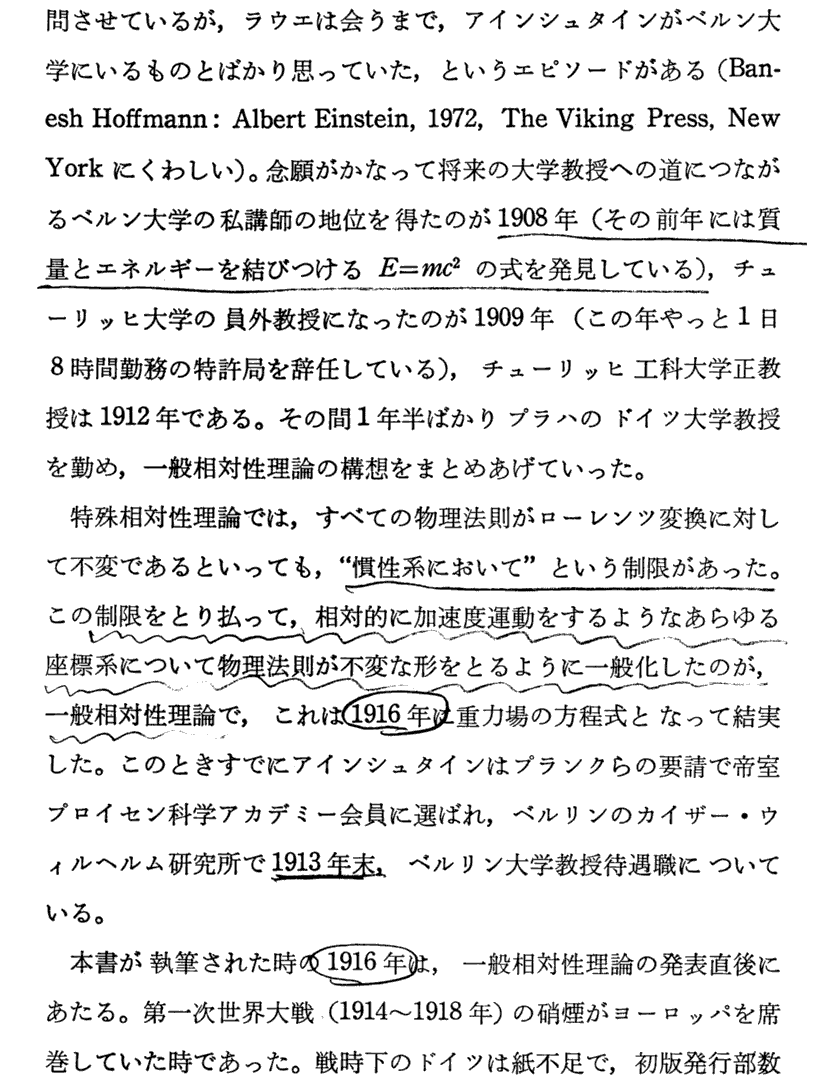 問させているが，ラウエは会うまで，アインシュタインがベルン大
学にいるものとばかり思っていた，というエピソードがある（Ban-
esh Hoffmann: Albert Einstein, 1972, The Viking Press, New
York にくわしい）。念願がかなって将来の大学教授への道につなが
るベルン大学の私講師の地位を得たのが 1908 年（その前年には質
量とエネルギーを結びつける E=mc² の式を発見している），チュ
ーリッヒ大学の員外教授になったのが 1909 年（この年やっと 1 日
8 時間勤務の特許局を辞任している），チューリッヒ工科大学正教
授は 1912 年である。その間 1 年半ばかりプラハのドイツ大学教授
を勤め，一般相対性理論の構想をまとめあげていった。
特殊相対性理論では，すべての物理法則がローレンツ変換に対し
て不変であるといっても，“慣性系において” という制限があった。
この制限をとり払って，相対的に加速度運動をするようなあらゆる
座標系について物理法則が不変な形をとるように一般化したのが，
一般相対性理論で，これは 1916 年に重力場の方程式となって結実
した。このときすでにアインシュタインはプランクらの要請で帝室
プロイセン科学アカデミー会員に選ばれ，ベルリンのカイザー・ウ
ィルヘルム研究所で 1913 年末，ベルリン大学教授待遇職について
いる。
本書が執筆された時の 1916 年は，一般相対性理論の発表直後に
あたる。第一次世界大戦（1914〜1918 年）の硝煙がヨーロッパを席
巻していた時であった。戦時下のドイツは紙不足で，初版発行部数